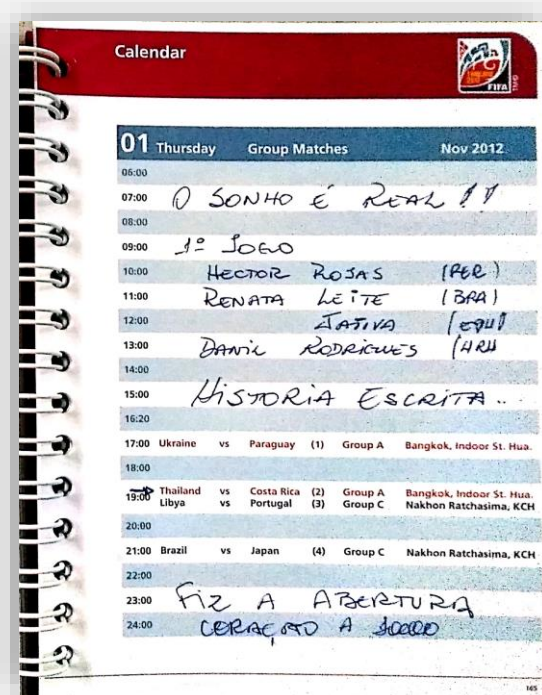 Calendar
FIFA
01 Thursday Group Matches Nov 2012
06:00
07:00 O SONHO É REAL !!
08:00
09:00 1º JOGO
10:00 HECTOR ROJAS (PER)
11:00 RENATA LEITE (BRA)
12:00 JATIVA
13:00 DANIL RODRIGUES
14:00
15:00 HISTORIA ESCRITA..
16:20
17:00 Ukraine vs Paraguay (1) Group A Bangkok, Indoor St. Hua.
18:00
19:00 Thailand vs Costa Rica (2) Group A Bangkok, Indoor St. Hua.
Libya vs Portugal (3) Group C Nakhon Ratchasima, KCH
20:00
21:00 Brazil vs Japan (4) Group C Nakhon Ratchasima, KCH
22:00
23:00 FIZ A ABERTURA
24:00 A
165